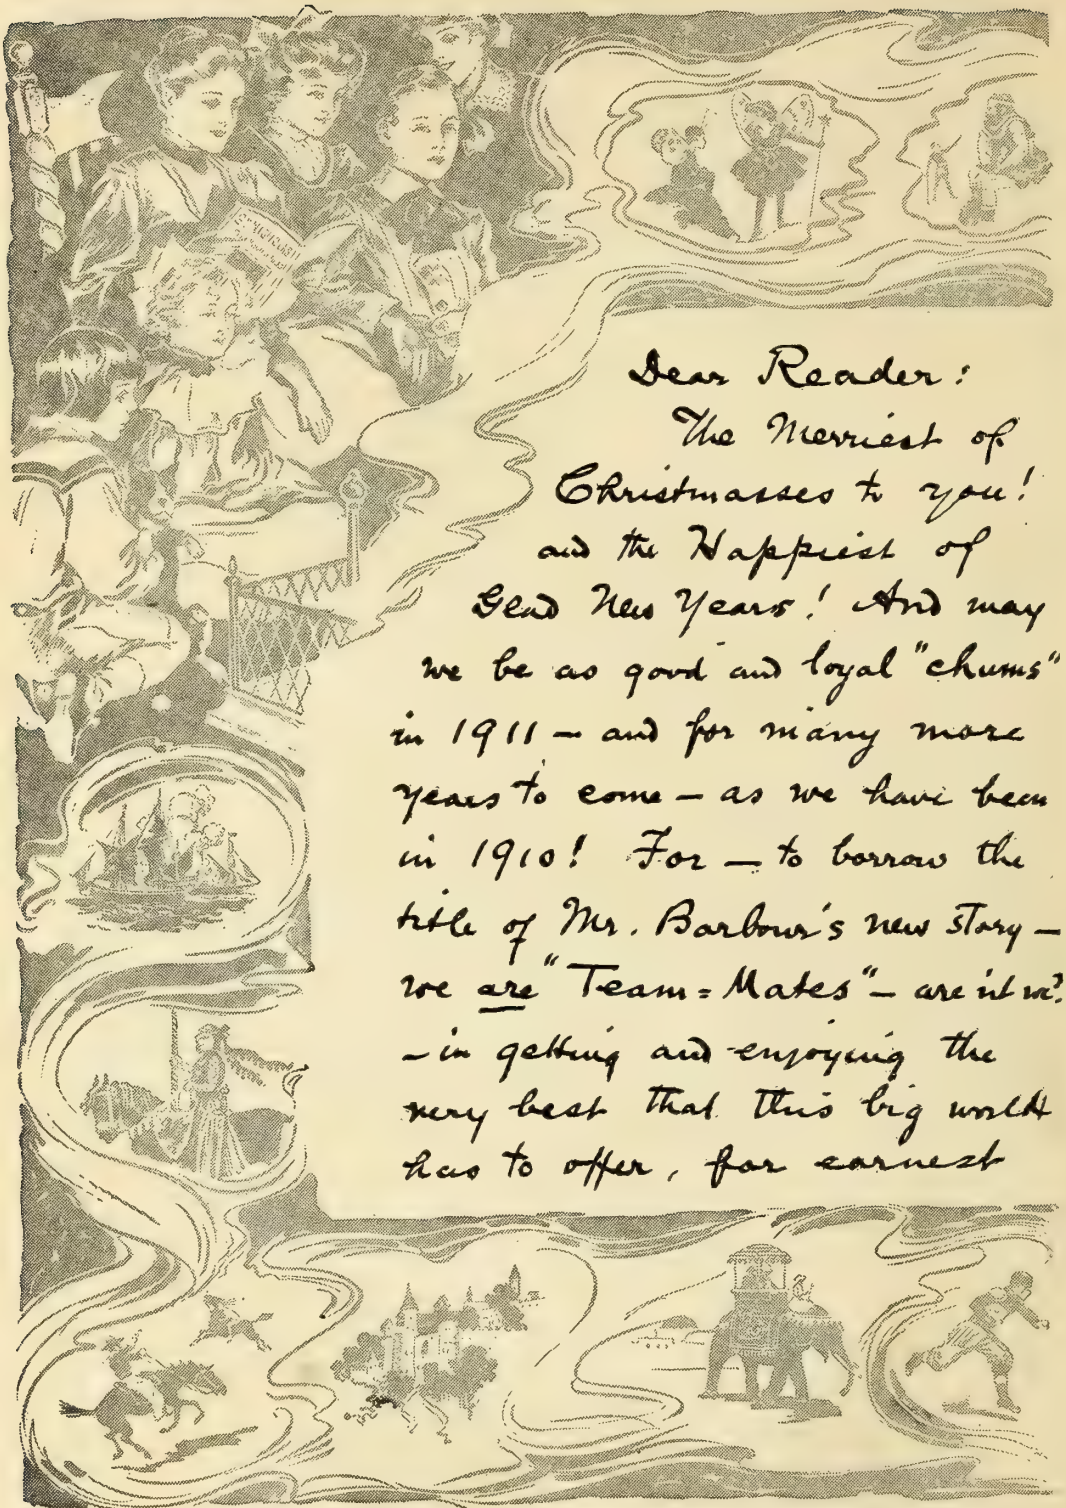 ST. NICHOLAS
Dear Reader:
The Merriest of
Christmasses to you!
and the Happiest of
Glad New Years! And may
we be as good and loyal "chums"
in 1911 – and for many more
years to come – as we have been
in 1910! For – to borrow the
title of Mr. Barbour's new story –
we are "Team=Mates" – are n't we?
– in getting and enjoying the
very best that this big world
has to offer, for earnest